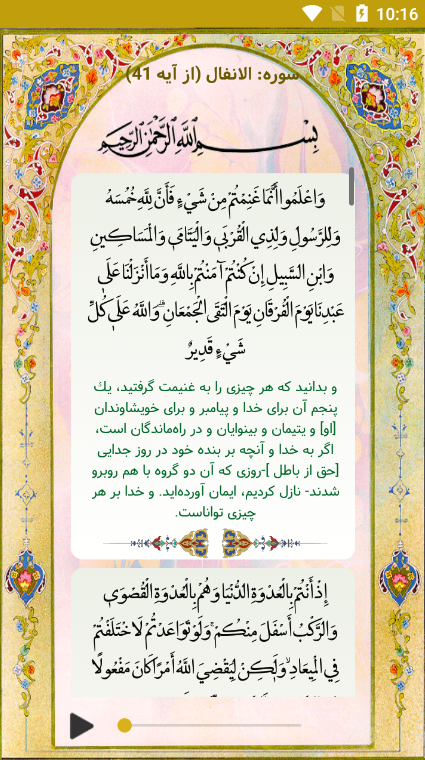 10:16
سوره: الانفال (از آیه 41)
بِسْمِ ٱللَّهِ ٱلرَّحْمَٰنِ ٱلرَّحِيمِ
وَاعْلَمُوا أَنَّمَا غَنِمْتُمْ مِنْ شَيْءٍ فَأَنَّ لِلَّهِ خُمُسَهُ
وَلِلرَّسُولِ وَلِذِي الْقُرْبَىٰ وَالْيَتَامَىٰ وَالْمَسَاكِينِ
وَابْنِ السَّبِيلِ إِنْ كُنْتُمْ آمَنْتُمْ بِاللَّهِ وَمَا أَنْزَلْنَا عَلَىٰ
عَبْدِنَا يَوْمَ الْفُرْقَانِ يَوْمَ الْتَقَى الْجَمْعَانِ ۗ وَاللَّهُ عَلَىٰ كُلِّ
شَيْءٍ قَدِيرٌ
و بدانید که هر چیزی را به غنیمت گرفتید، یك
پنجم آن برای خدا و پیامبر و برای خویشاوندان
[او] و یتیمان و بینوایان و در راه‌ماندگان است،
اگر به خدا و آنچه بر بنده خود در روز جدایی
[حق از باطل ]-روزی که آن دو گروه با هم روبرو
شدند- نازل کردیم، ایمان آورده‌اید. و خدا بر هر
چیزی تواناست.
إِذْ أَنْتُمْ بِالْعُدْوَةِ الدُّنْيَا وَهُمْ بِالْعُدْوَةِ الْقُصْوَىٰ
وَالرَّكْبُ أَسْفَلَ مِنْكُمْ ۚ وَلَوْ تَوَاعَدْتُمْ لَاخْتَلَفْتُمْ
فِي الْمِيعَادِ ۙ وَلَٰكِنْ لِيَقْضِيَ اللَّهُ أَمْرًا كَانَ مَفْعُولًا